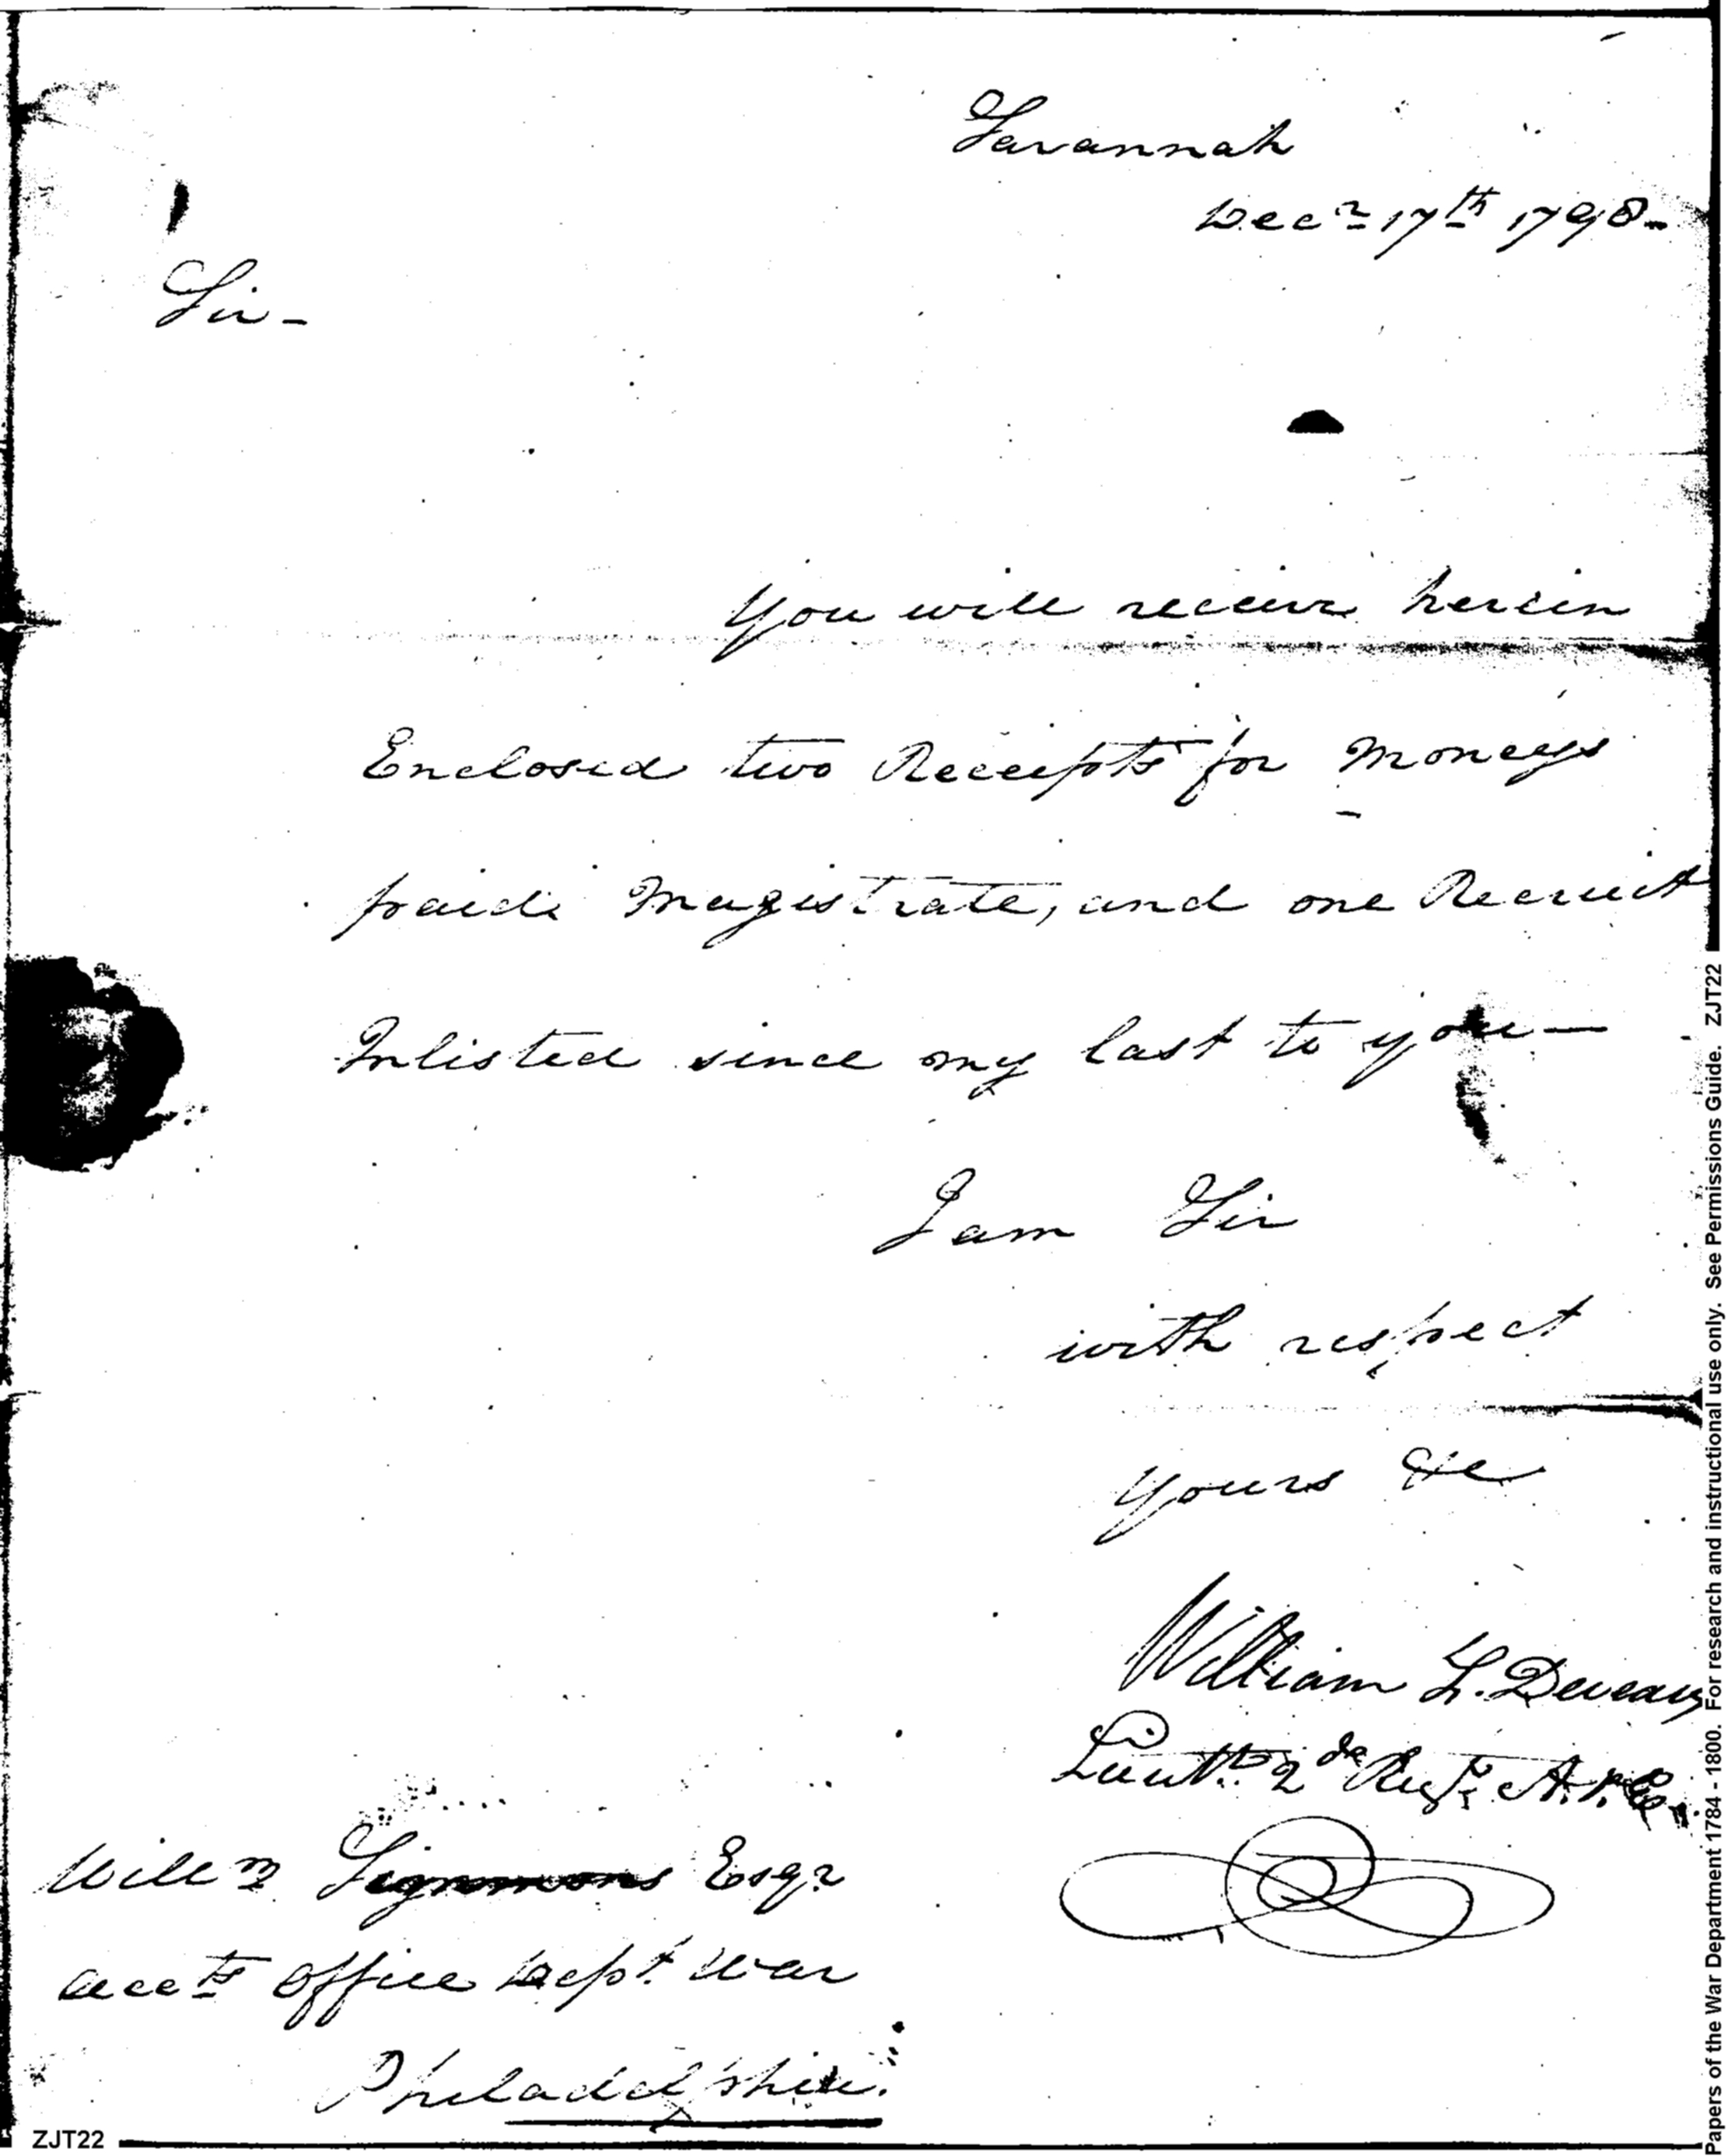 Savannah
Decr 17th 1798-
Sir-
You will receive herein
Enclosed two Receipts for Moneys
paid Magistrate, and one Recruit
Inlisted since my last to you—
I am Sir
with respect
Yours &c
William L. Deveaux
Lieutt. 2de Regt.
Willm Simmons Esqr
Accts office Dept. War
Philadelphia.
ZJT22
Papers of the War Department 1784 - 1800. For research and instructional use only. See Permissions Guide. ZJT22